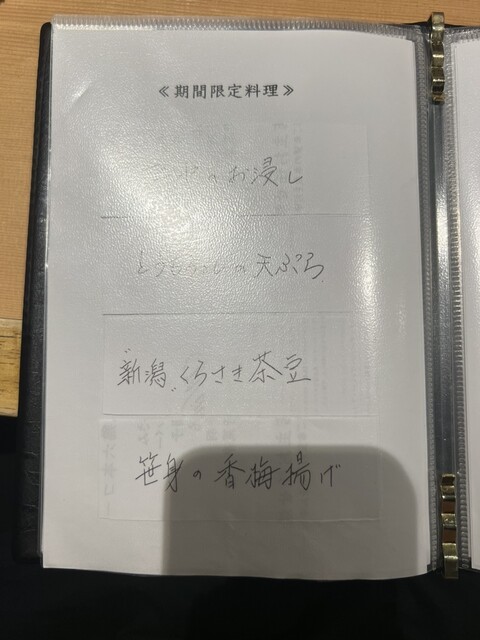 《期間限定料理》
のお浸し
とうもろこしの天ぷら
"新潟"くろさき茶豆
笹身の香梅揚げ